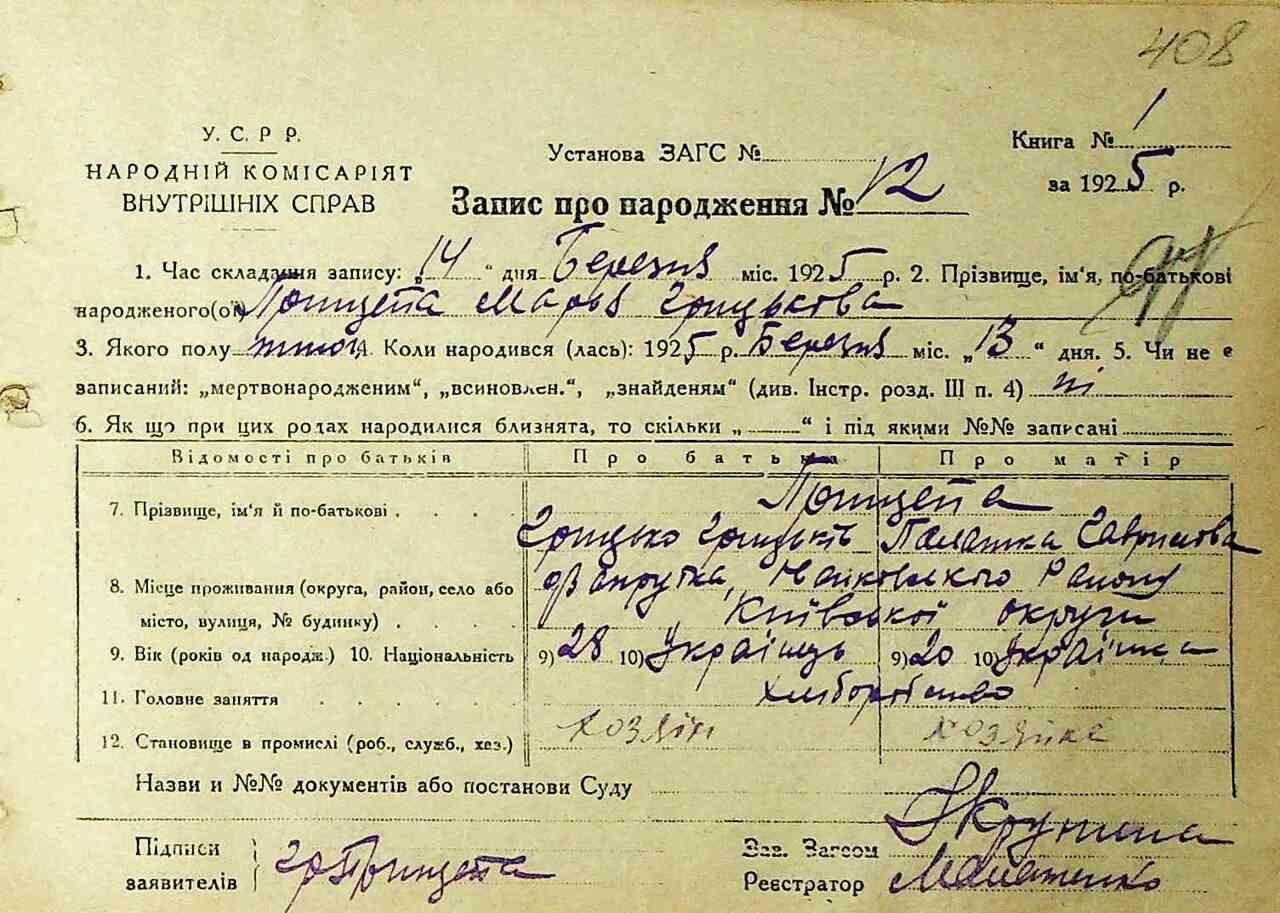 408
У. С. Р Р.
НАРОДНІЙ КОМІСАРІЯТ
ВНУТРІШНІХ СПРАВ
Установа ЗАГС №
Книга № 1
за 1925 р.
Запис про народження № 12
1. Час складання запису: „14“ дня Березня міс. 1925 р. 2. Прізвище, ім'я, по-батькові
народженого(ої) Прищепа Марья Грицькова
3. Якого полу жіноч. Коли народився (лась): 1925 р. Березня міс. „13“ дня. 5. Чи не є
записаний: „мертвонародженим“, „всиновлен.“, „знайденям“ (див. Інстр. розд. III п. 4) ні
6. Як що при цих родах народилися близнята, то скільки „ “ і під якими №№ записані
Відомості про батьків Про батька Про матір
7. Прізвище, ім'я й по-батькові Прищепа
Грицько Грицьків Палашка Гаврилова
8. Місце проживання (округа, район, село або місто, вулиця, № будинку) Району
Київської округи
9. Вік (років од народж.) 10. Національність 9) 28 10) Українець 9) 20 10) Українка
11. Головне заняття хліборобство
12. Становище в промислі (роб., служб., хаз.) хозяін хозяйка
Назви и №№ документів або постанови Суду
Підписи
заявителів гр Прищепа
Зав. Загсом
Реєстратор